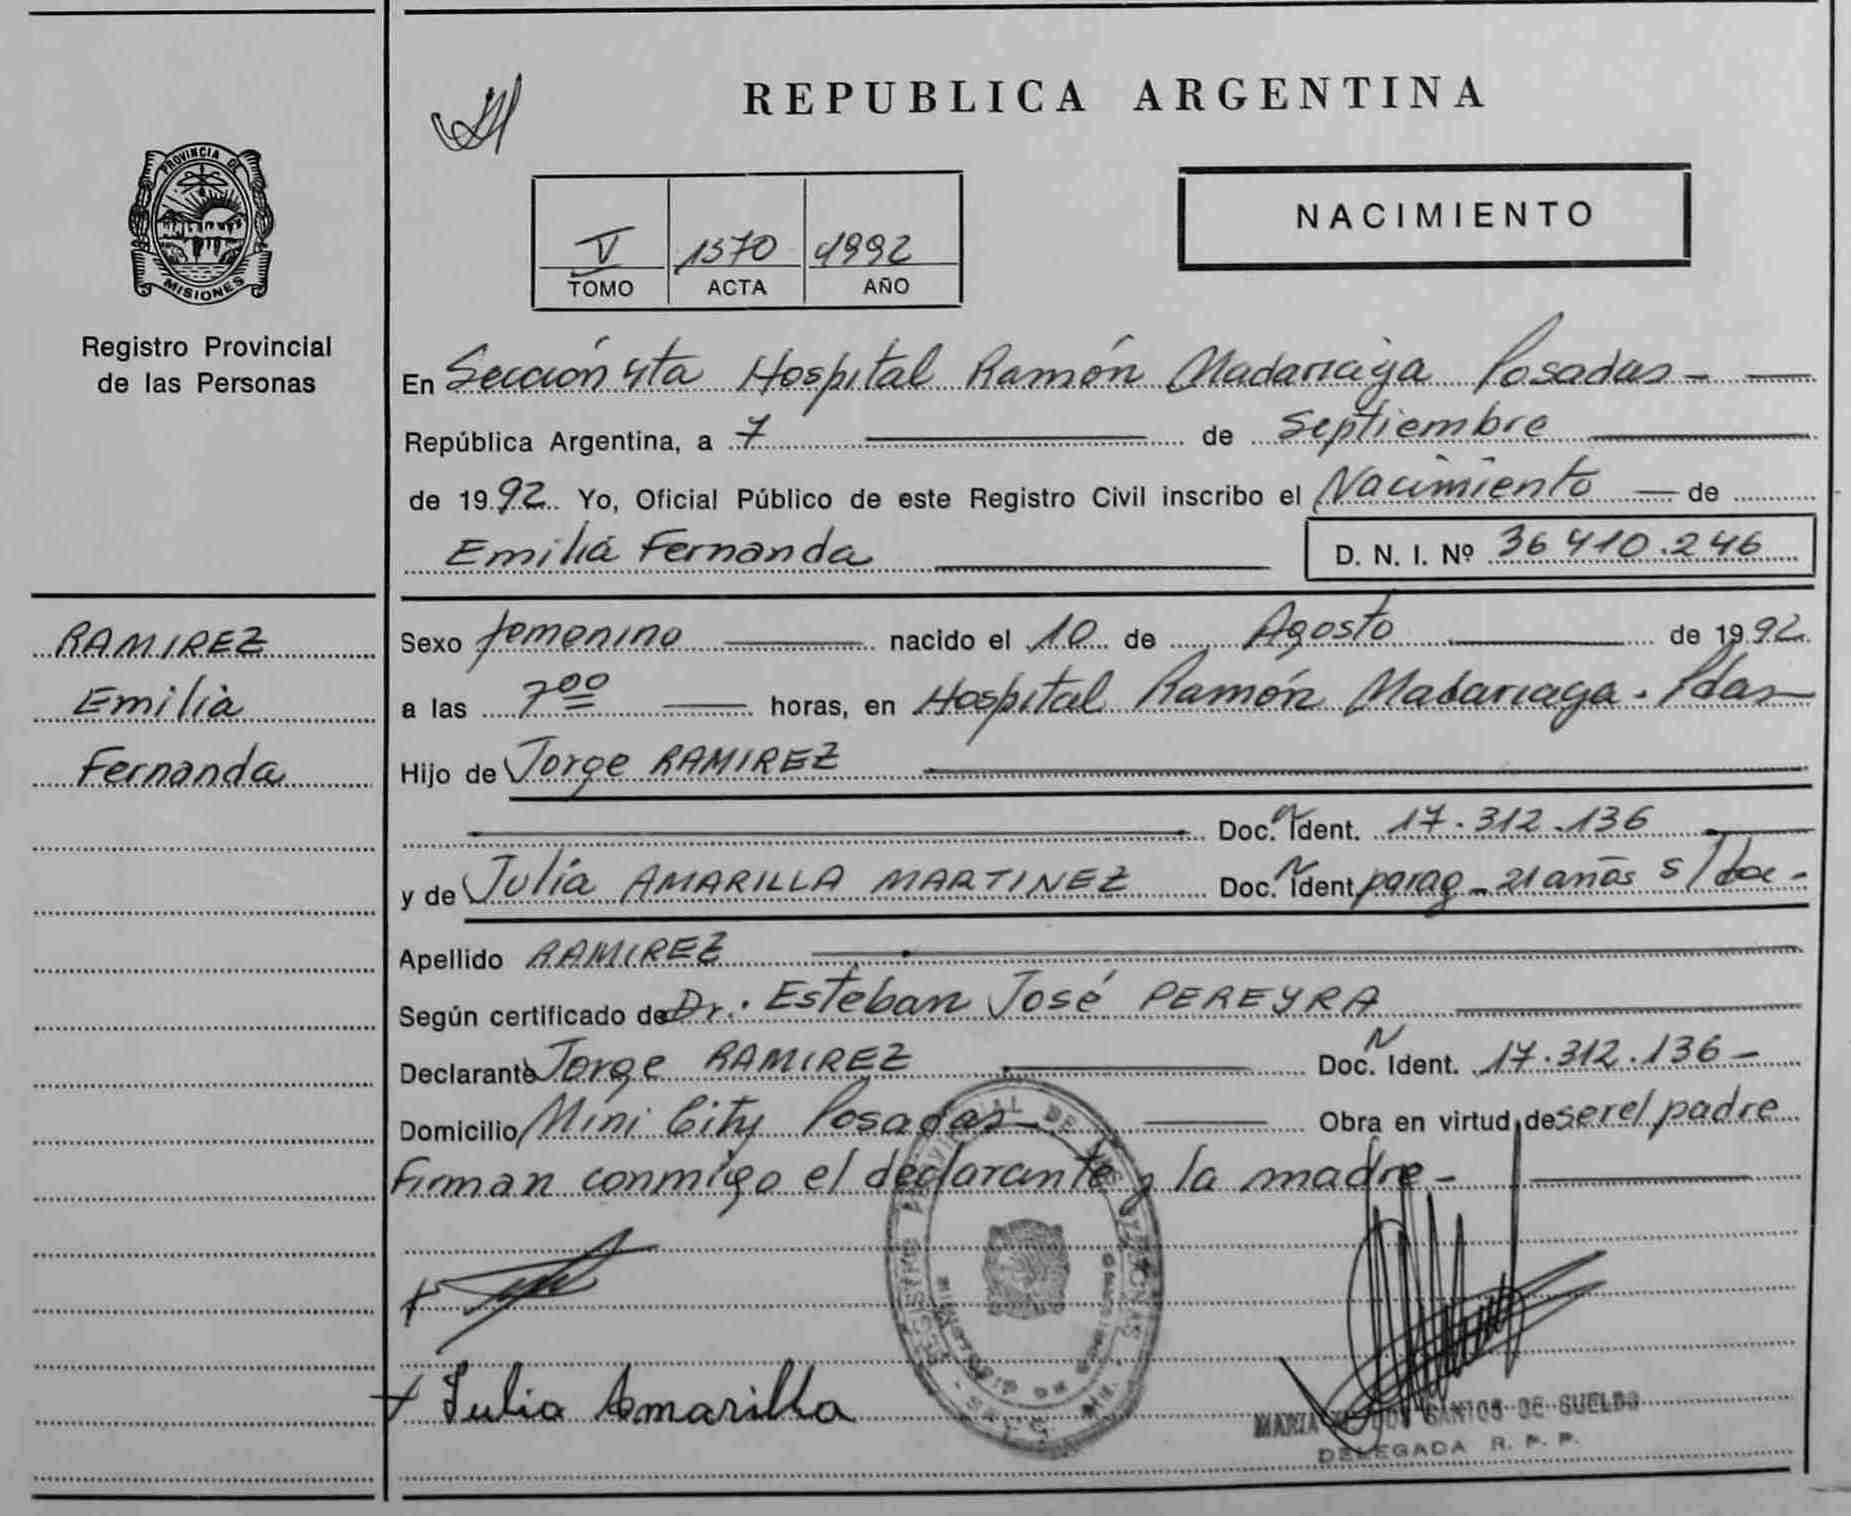 REPUBLICA ARGENTINA
PROVINCIA DE
MISIONES
Registro Provincial
de las Personas
NACIMIENTO
V 1370 1992
TOMO ACTA AÑO
En Sección 4ta Hospital Ramón Madariaga Posadas -
República Argentina, a 7 de Septiembre
de 1992. Yo, Oficial Público de este Registro Civil inscribo el Nacimiento de
Emilia Fernanda D. N. I. Nº 36 410.246
RAMIREZ
Emilia
Fernanda
Sexo femenino nacido el 10 de Agosto de 1992
a las 7 00 horas, en Hospital Ramón Madariaga - Pdas
Hijo de Jorge RAMIREZ
Doc. N Ident. 17.312.136
y de Julia AMARILLA MARTINEZ Doc. N Ident parag - 21 años s/doc -
Apellido RAMIREZ
Según certificado de Dr. Esteban José PEREYRA
Declarante Jorge RAMIREZ Doc. N Ident. 17.312.136 -
Domicilio Mini City Posadas Obra en virtud de ser el padre
Firman conmigo el declarante y la madre -
REGISTRO PROVINCIAL DE LAS PERSONAS
Julia Amarilla
MARIA SANTOS DE SUELDO
DELEGADA R. P. P.